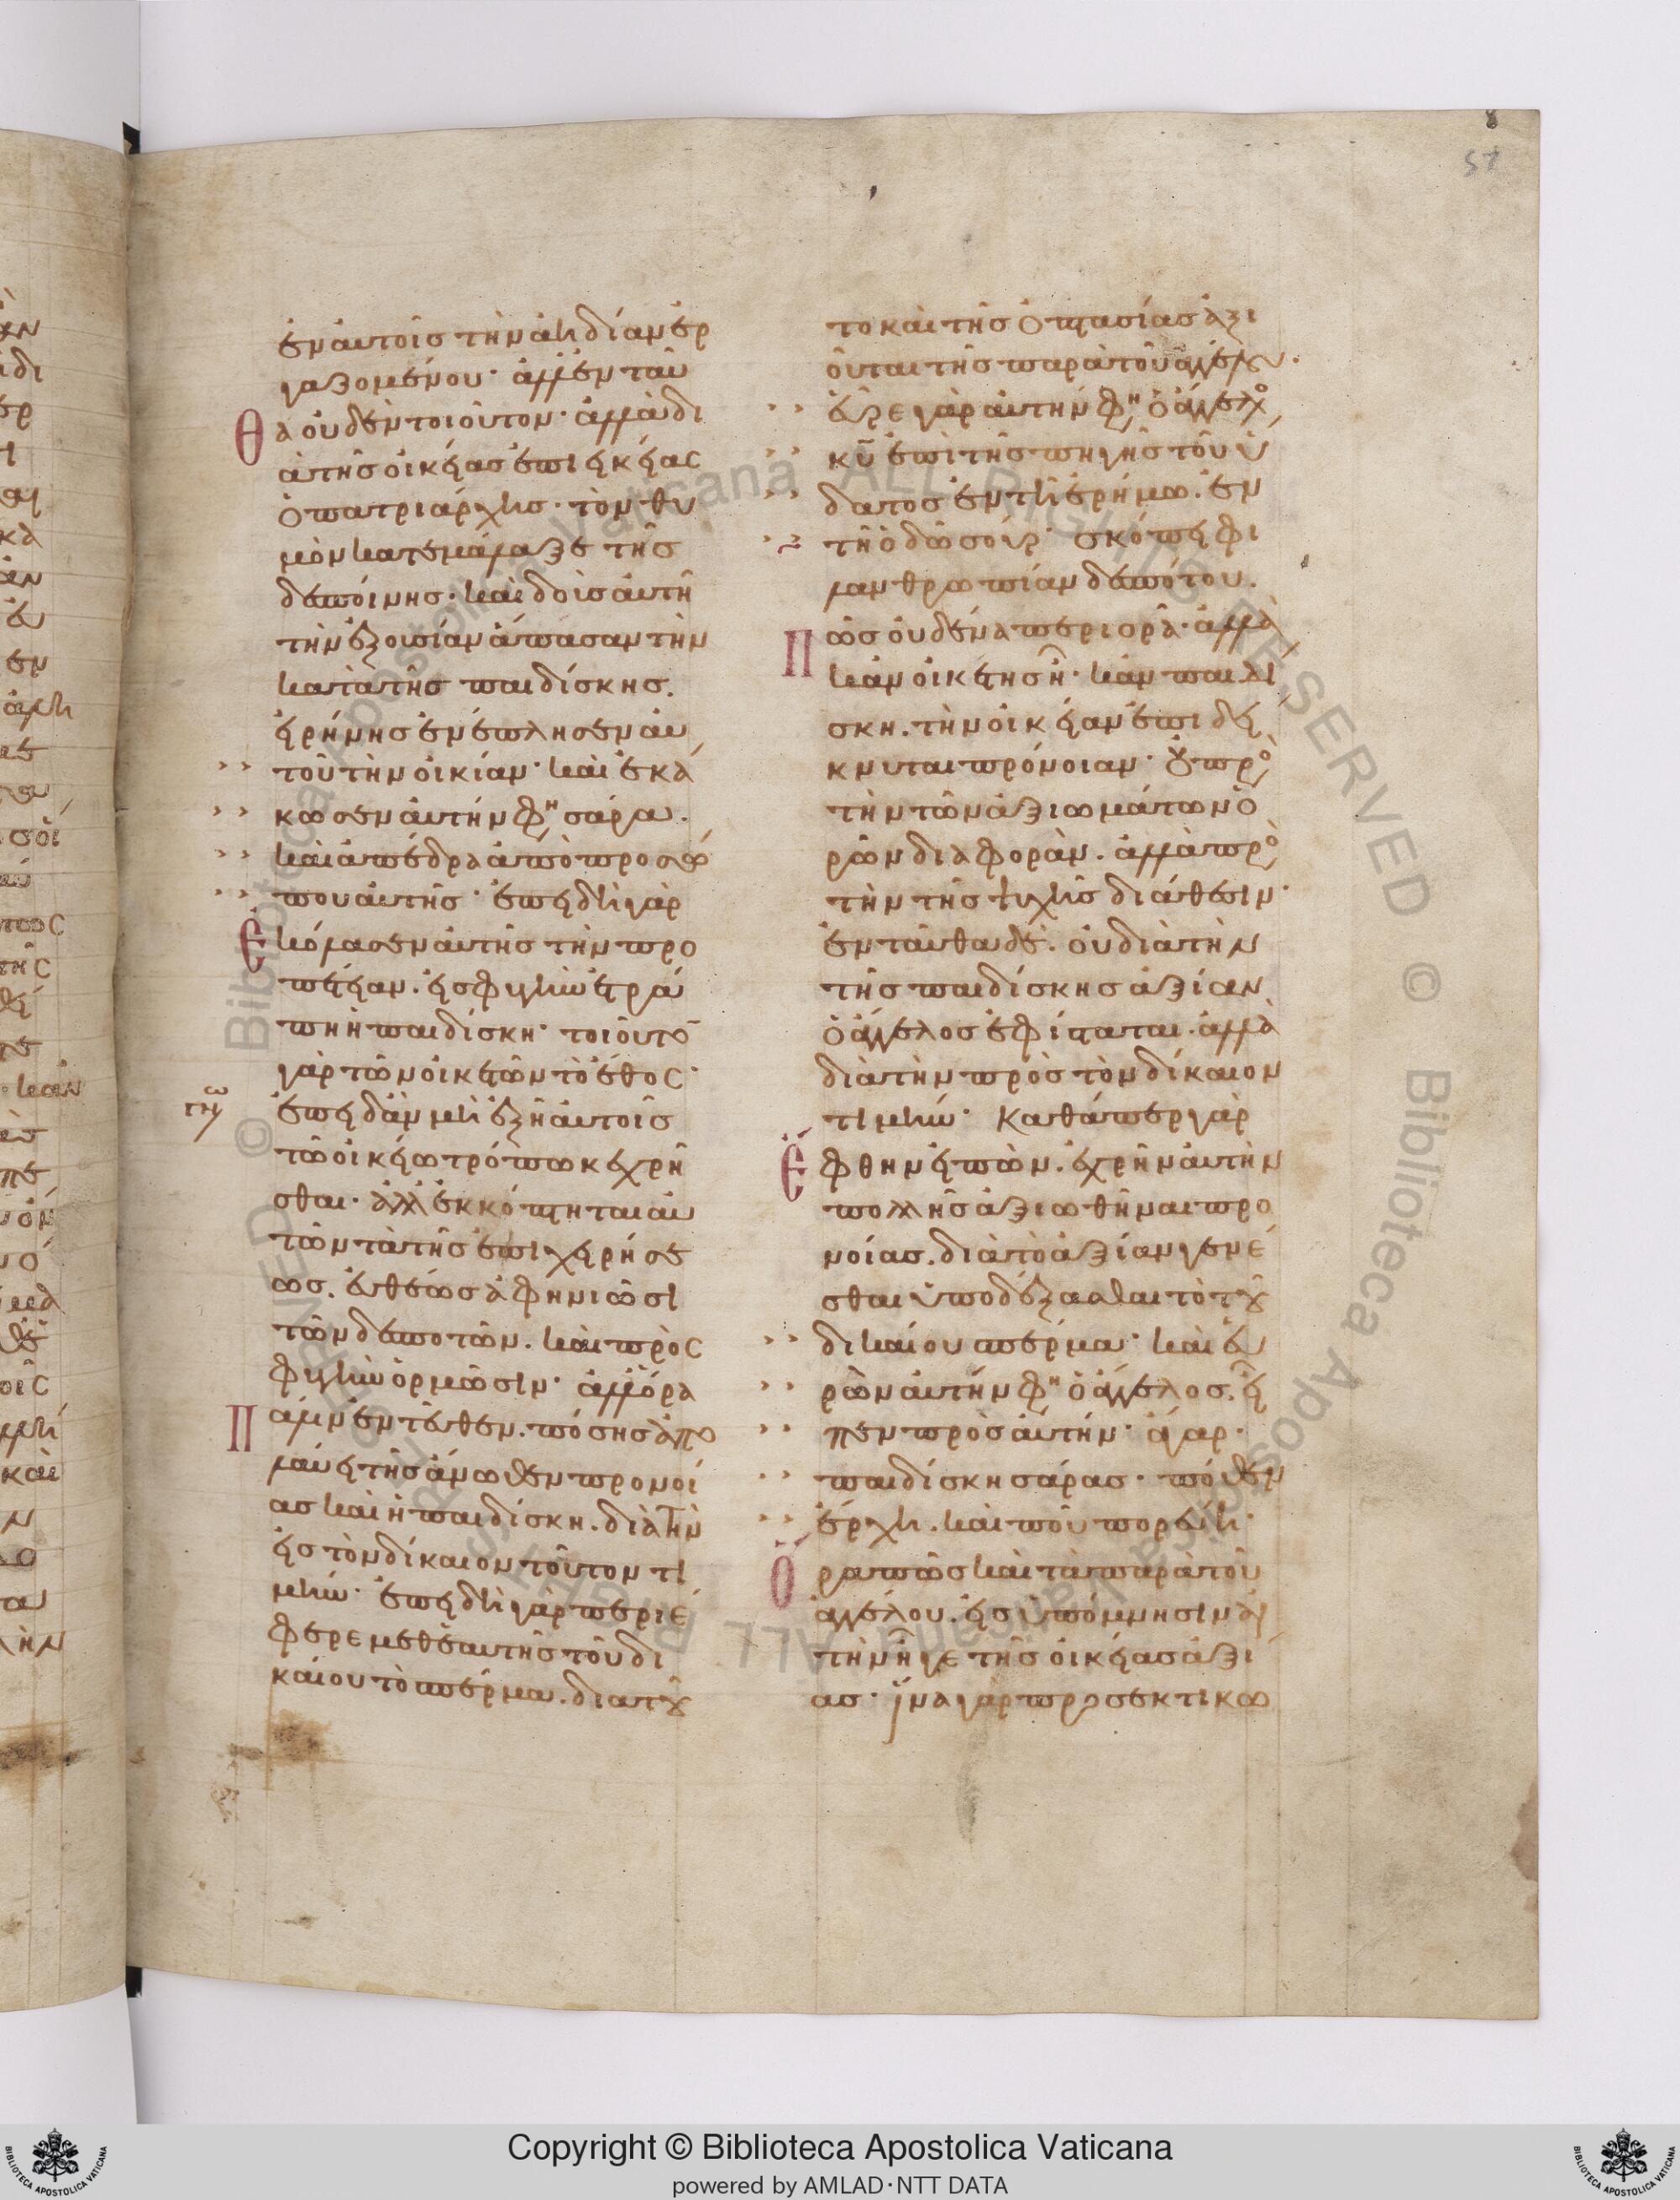 ἐν αυτοῖς τὴν ἀηδίαν ἐρ
γαζομένου· ἀλλ' ἐνταῦ
θα οὐδὲν τοιοῦτον· ἀλλὰ δι
ὰ τῆς οἰκείας ἐπιεικείας
ὁ πατριάρχης· τὸν θυ
μὸν κατεμάλαξε τῆς
δεσποίνης· καὶ δοὺς αὐτῆ
τὴν ἐξουσίαν ἅπασαν τὴν
κατὰ τῆς παιδίσκης.
εἰρήνης ἐνέπλησεν αὐ
τοῦ τὴν οἰκίαν· καὶ ἐκά
κωσεν αὐτήν φη σάρα.
καὶ ἀπέδρα ἀπὸ προσώ
που αὐτῆς· ἐπειδὴ γὰρ
ἐκόλασεν αὐτῆς τὴν προ
πέτειαν. εἰς φυγὴν ἐτρά
πη ἡ παιδίσκη· τοιοῦτο
γὰρ τῶν οἰκετῶν τὸ ἔθος·
ἐπειδὰν μὴ ἐξῆ αὐτοῖς
τῶ οἰκείω τρόπω κεχρῆ
σθαι· ἀλλ' ἐκκόπτηται αὐ
τῶν τὰ τῆς ἐπιχειρήσε
ως. εὐθέως ἀφηνιῶσι
τῶν δεσποτῶν. καὶ πρὸς
φυγὴν ὁρμῶσιν· ἀλλ' ὅρα
μοι κἀντεῦθεν. πόσης ἀπο
λαύει τῆς ἄνωθεν προνοί
ας καὶ ἡ παιδίσκη. διὰ τὴν
εἰς τὸν δίκαιον τοῦτον τι
μήν· ἐπειδὴ γὰρ περιέ
φερε μεθ' ἑαυτῆς τοῦ δι
καίου τὸ σπέρμα. διατοῦ
το καὶ τῆς ὀπτασίας ἀξι
οῦται τῆς παρὰ τοῦ ἀγγέλου.
εὗρε γὰρ αὐτήν φη ὁ ἄγγελος
κυ ἐπὶ τῆς πηγῆς τοῦ ὕ
δατος ἐν τῆ ἐρήμω. ἐν
τῆ ὁδῶ σούρ· σκόπει φι
λανθρωπίαν δεσπότου.
πῶς οὐδένα περιορᾶ· ἀλλὰ
κἂν οἰκέτης ἦ· κἂν παιδί
σκη. τὴν οἰκείαν ἐπιδεί
κνυται πρόνοιαν· οὐ πρὸς
τὴν τῶν ἀξιωμάτων ὁ
ρῶν διαφοράν. ἀλλὰ πρὸς
τὴν τῆς ψυχῆς διάθεσιν·
ἐνταῦθα δὲ. οὐ διὰ τὴν
τῆς παιδίσκης ἀξίαν
ὁ ἄγγελος ἐφίσταται. ἀλλὰ
διὰ τὴν πρὸς τὸν δίκαιον
τιμήν· Καθάπερ γὰρ
ἔφθην εἰπὼν. ἐχρῆν αὐτὴν
πολλῆς ἀξιωθῆναι προ
νοίας. διὰ τὸ ἀξίαν γενέ
σθαι ὑποδέξασθαι τὸ τοῦ
δικαίου σπέρμα· καὶ εὑ
ρὼν αὐτήν φη ὁ ἄγγελος. εἶ
πεν πρὸς αὐτήν· ἄγαρ·
παιδίσκη σάρας· πόθεν
ἔρχη. καὶ ποῦ πορεύη·
ὅρα πῶς καὶ τὰ παρὰ τοῦ
ἀγγέλου. εἰς ὑπόμνησιν ἄγει
τὴν γε τῆς οἰκείας ἀξί
ας· ἵνα γὰρ προσεκτικω